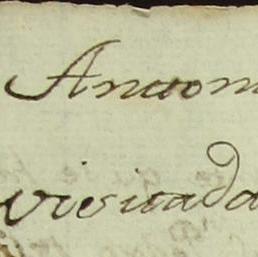 Antoni
visitada